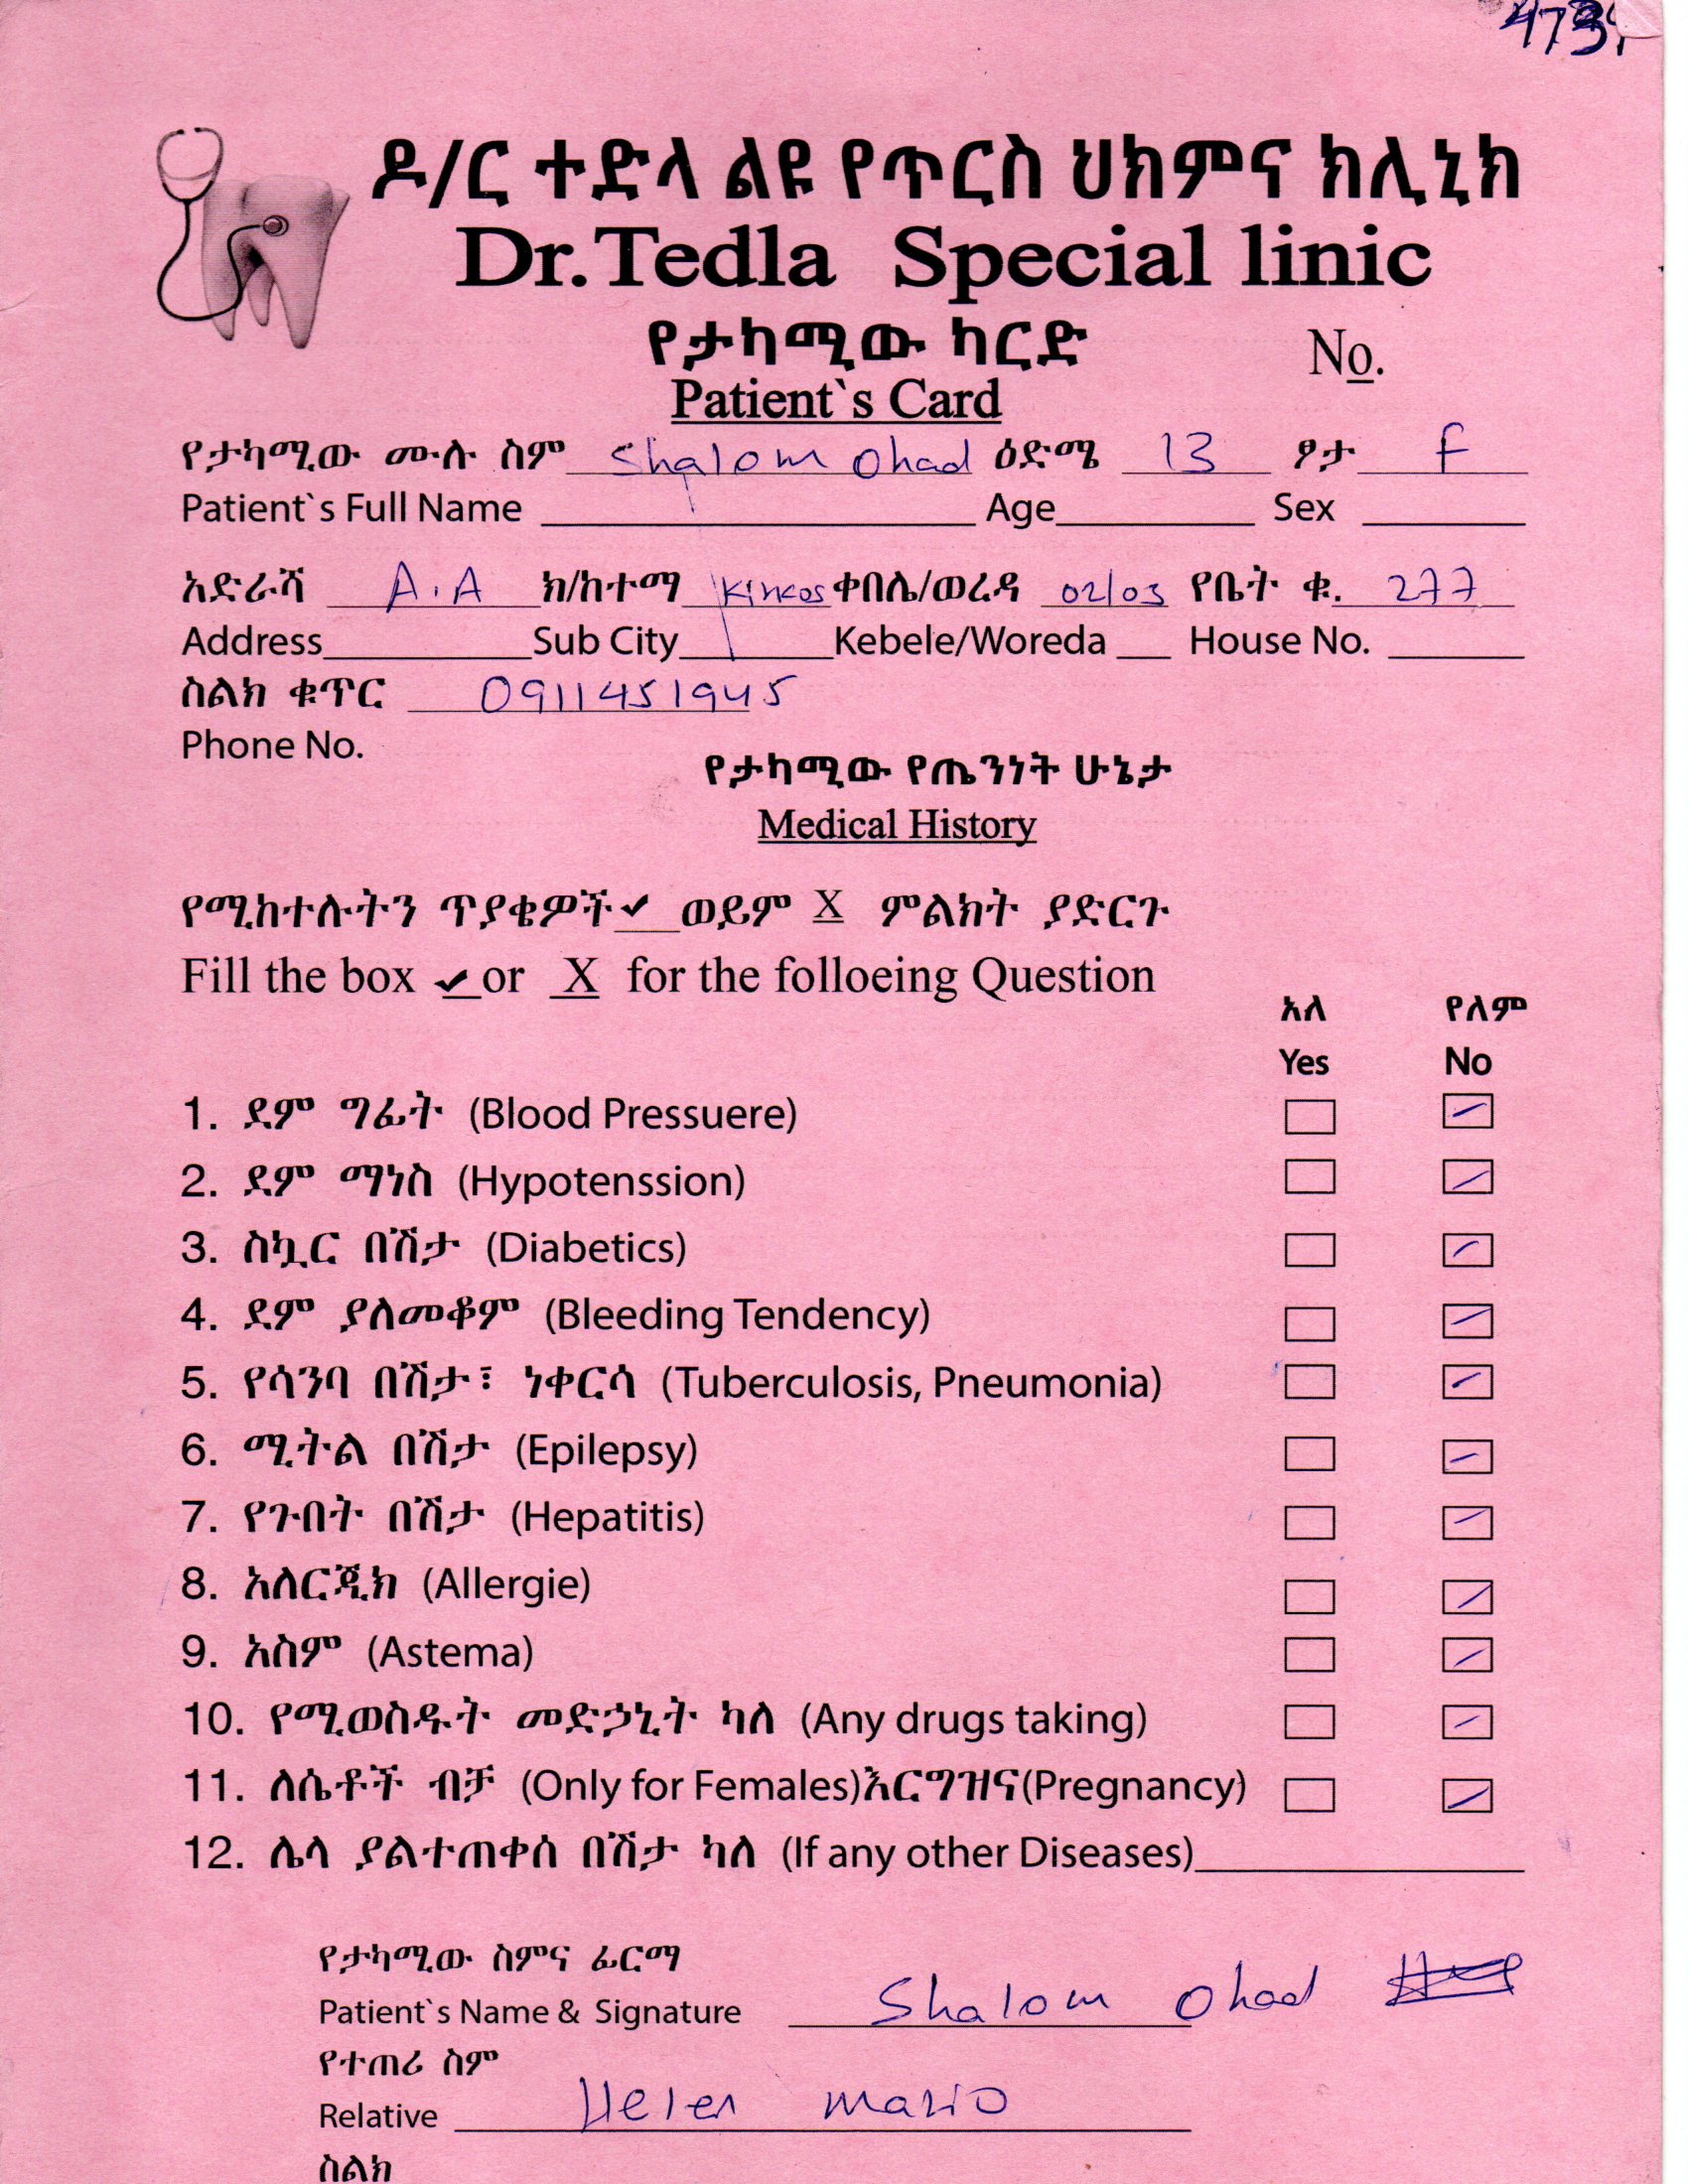 473
ዶ/ር ተድላ ልዩ የጥርስ ህክምና ክሊኒክ
Dr.Tedla Special linic
የታካሚው ካርድ
No.
Patient`s Card
የታካሚው ሙሉ ስም Shalom Ohad ዕድሜ 13 ፆታ F
Patient`s Full Name Age Sex
አድራሻ A.A ክ/ከተማ Kirkos ቀበሌ/ወረዳ 02/03 የቤት ቁ. 277
Address Sub City Kebele/Woreda House No.
ስልክ ቁጥር 0911451945
Phone No.
የታካሚው የጤንነት ሁኔታ
Medical History
የሚከተሉትን ጥያቄዎች ✔ ወይም X ምልክት ያድርጉ
Fill the box ✔ or X for the folloeing Question
አለ የለም
Yes No
1. ደም ግፊት (Blood Pressuere)
2. ደም ማነስ (Hypotenssion)
3. ስኳር በሽታ (Diabetics)
4. ደም ያለመቆም (Bleeding Tendency)
5. የሳንባ በሽታ፣ ነቀርሳ (Tuberculosis, Pneumonia)
6. ሚትል በሽታ (Epilepsy)
7. የጉበት በሽታ (Hepatitis)
8. አለርጂክ (Allergie)
9. አስም (Astema)
10. የሚወስዱት መድኃኒት ካለ (Any drugs taking)
11. ለሴቶች ብቻ (Only for Females)እርግዝና(Pregnancy)
12. ሌላ ያልተጠቀሰ በሽታ ካለ (If any other Diseases)
የታካሚው ስምና ፊርማ
Patient`s Name & Signature Shalom Ohad
የተጠሪ ስም
Relative Helen mario
ስልክ